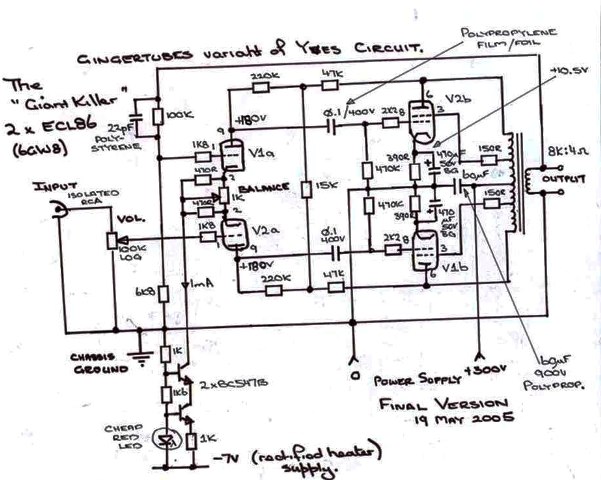 GINGERTUBES variant of YVES CIRCUIT.
POLYPROPYLENE
FILM/FOIL
The
"Giant Killer"
2 x ECL86
(6GW8)
220K
47K
+10.5V
100K
22pF
POLY-
STYRENE
9
+180V
0.1/400V
2K2
8
6
3
V2b
1K8
1
V1a
470R
2
BALANCE
1K
470R
2
1K8
V2a
9
+180V
15K
470K
390R
470µF
50V
BG
60µF
150R
150R
8K:4Ω
OUTPUT
470K
390R
470
µF
50V
BG
INPUT
ISOLATED
RCA
VOL.
100K
LOG
0.1
400V
2K2
8
3
6
V1b
220K
47K
6K8
1mA
CHASSIS
GROUND
1K
2xBC547B
1K6
CHEAP
RED
LED
1K
-7V (rectified heater)
supply.
0
POWER SUPPLY
+300V
60µF
900V
POLYPROP.
FINAL VERSION
19 MAY 2005